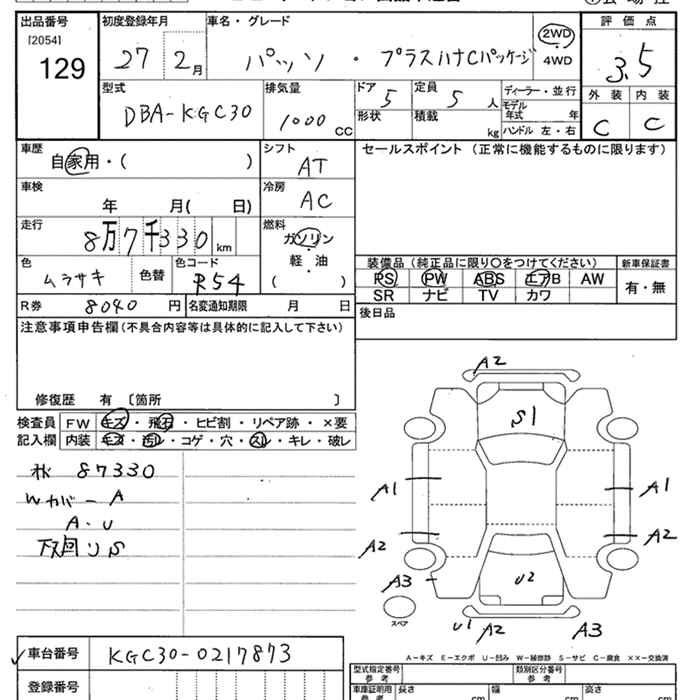 出品番号 初度登録年月 車名・グレード 評価点
[2054]
129 27 2月 パッソ ・ プラスハナCパッケージ 2WD ・ 4WD 3.5
型式 排気量 ドア 定員 ディーラー・並行 外装 内装
DBA-KGC30 1000 CC 5 5 人 モデル年式 年 C C
形状 積載 kg ハンドル 左・右
車歴 シフト セールスポイント (正常に機能するものに限ります)
自家用・( ) AT
車検 冷房
年 月( 日) AC
走行 燃料
8万7千330 km ガソリン
色 色替 色コード 軽・油 装備品 (純正品に限り○をつけてください) 新車保証書
ムラサキ R54 ( ) PS PW ABS エアB AW 有・無
SR ナビ TV カワ
R券 8040 円 名変通知期限 月 日 後日品
注意事項申告欄(不具合内容等は具体的に記入して下さい)
修復歴 有 〔箇所 〕
検査員 FW キズ・飛石・ヒビ割・リペア跡・×要
記入欄 内装 キズ・汚レ・コゲ・穴・スレ・キレ・破レ
87330
Wカバー A
A・U
下回りS
A2
S1
A1 A1
A2 A2
A3 U2
スペア
U1 A2 A3
車台番号 KGC30-0217873
A-キズ E-エクボ U-凹み W-補修跡 S-サビ C-腐食 ××-交換済
登録番号 型式指定番号 参考 類別区分番号 参考
車庫証明用 参考 長さ cm 幅 cm 高さ cm